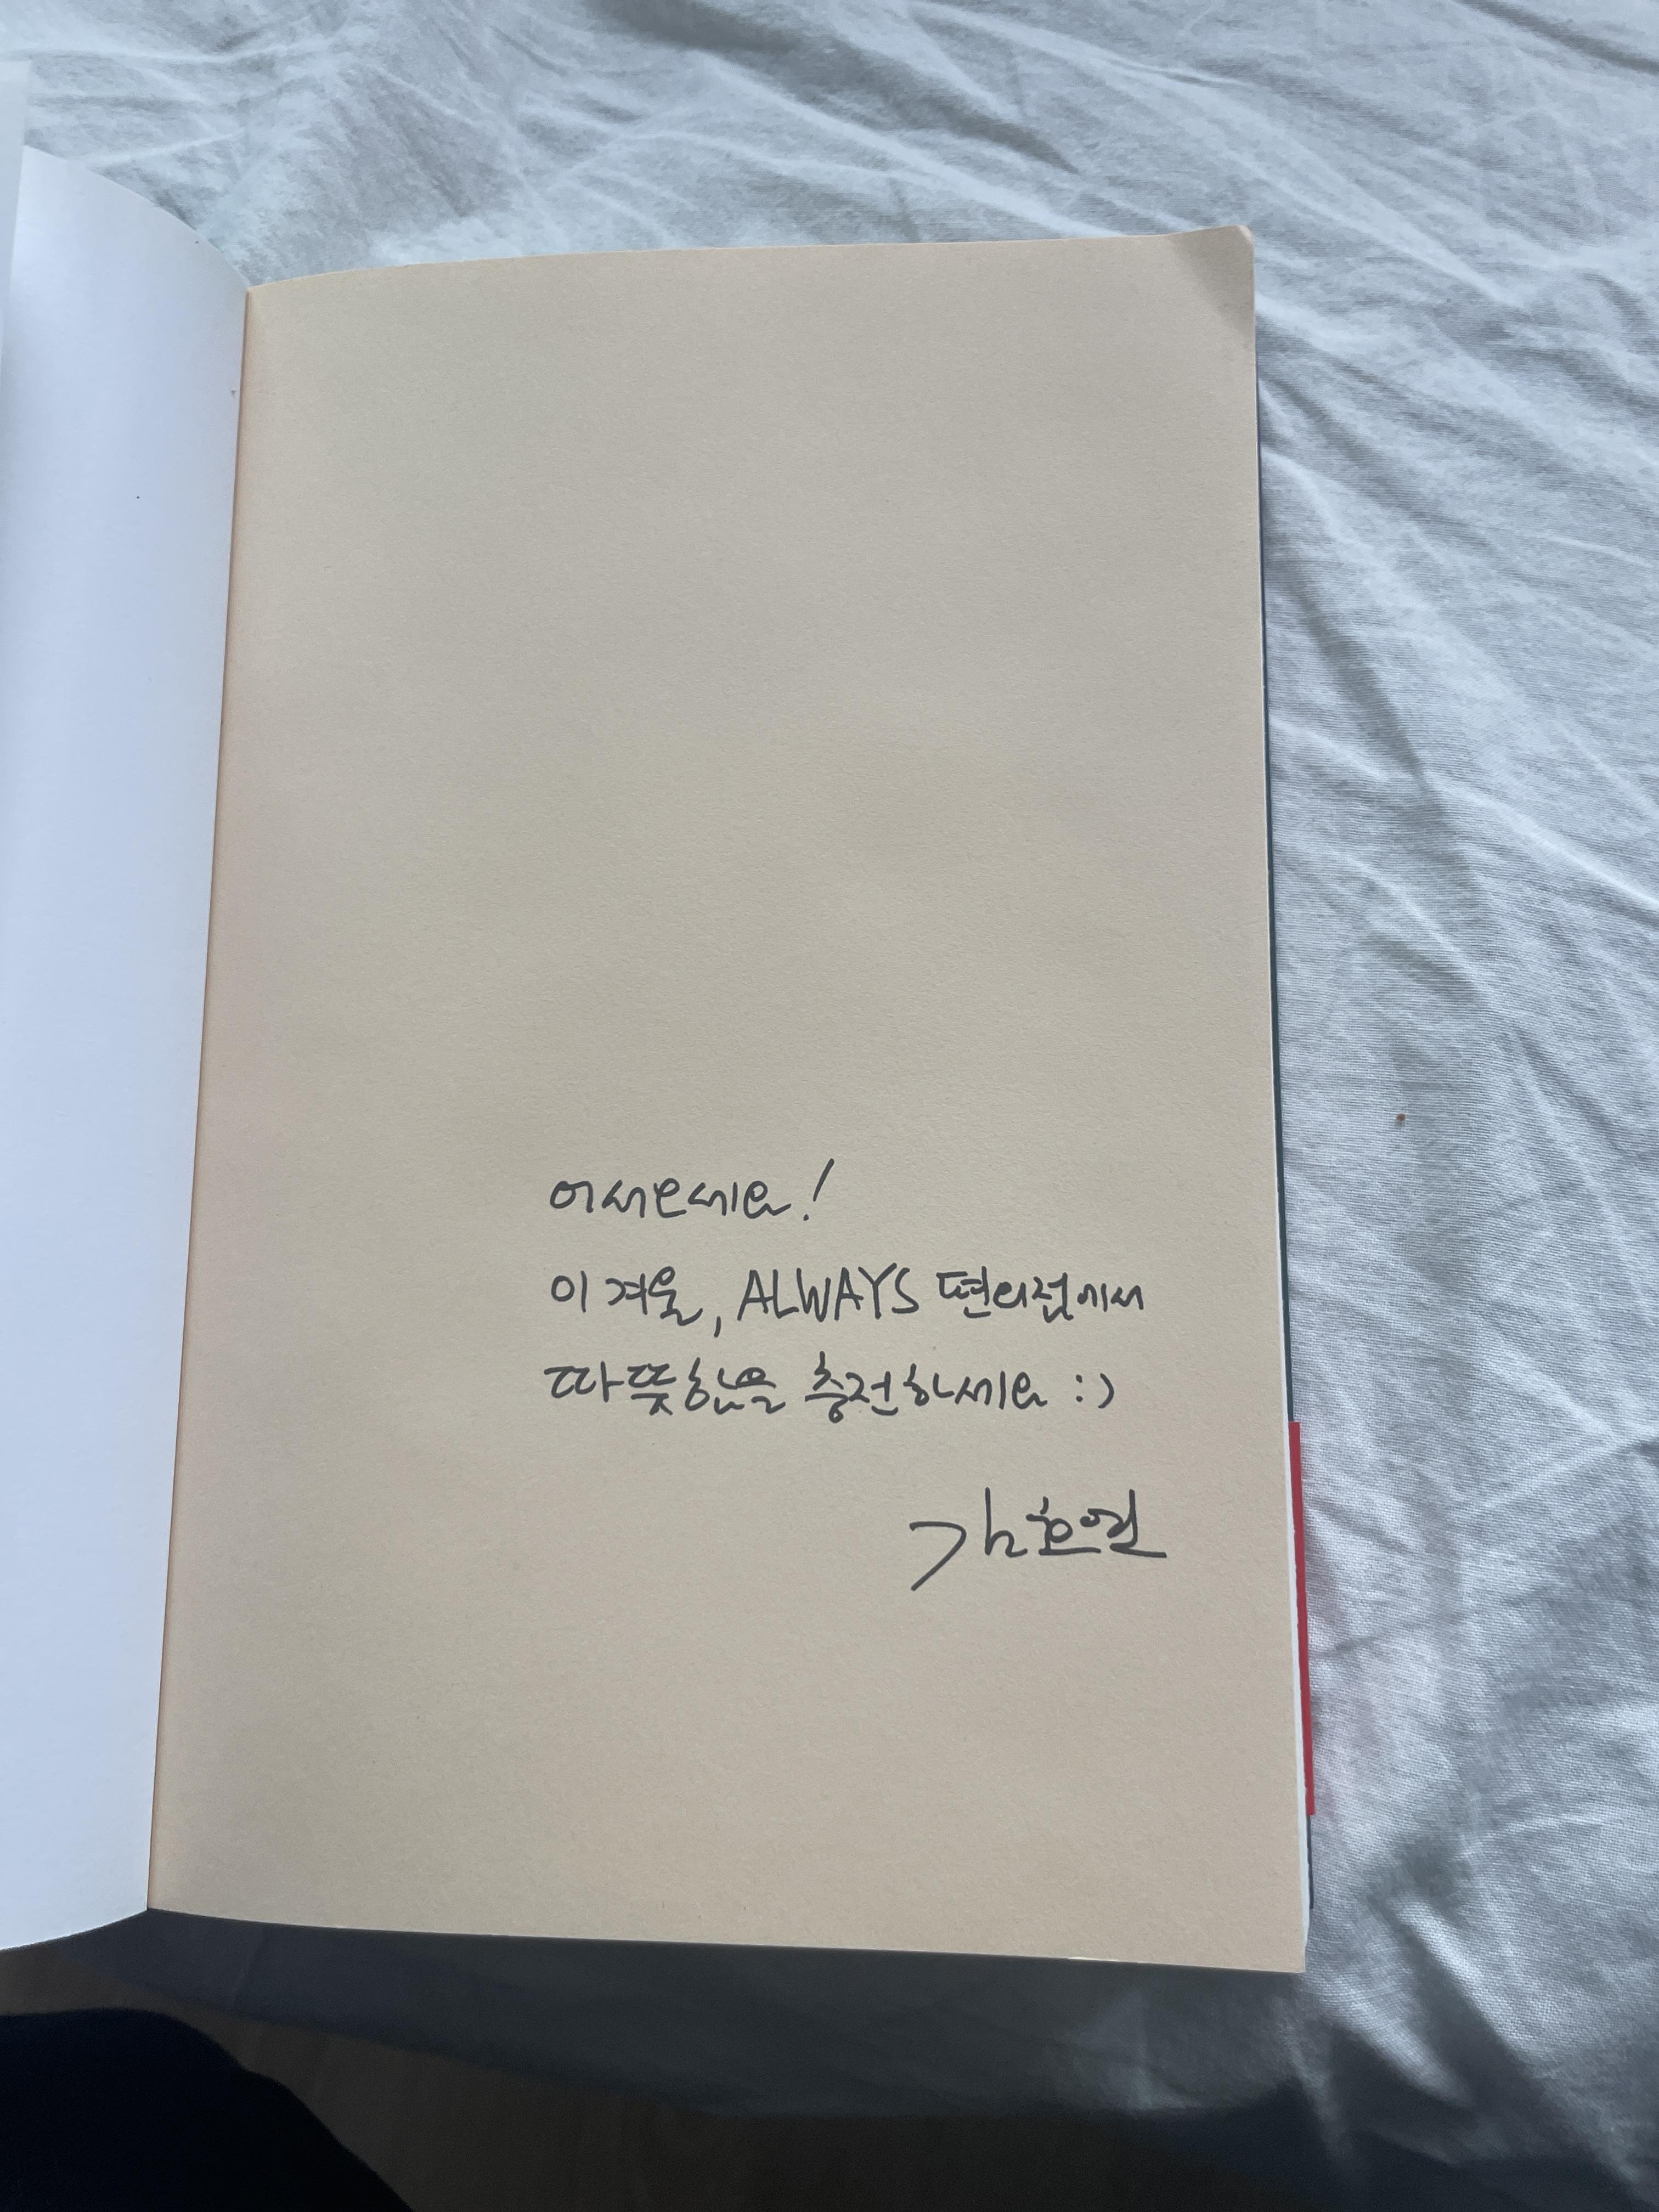 어서오세요!
이 겨울, ALWAYS 편의점에서
따뜻함을 충전하세요 :)
김호연